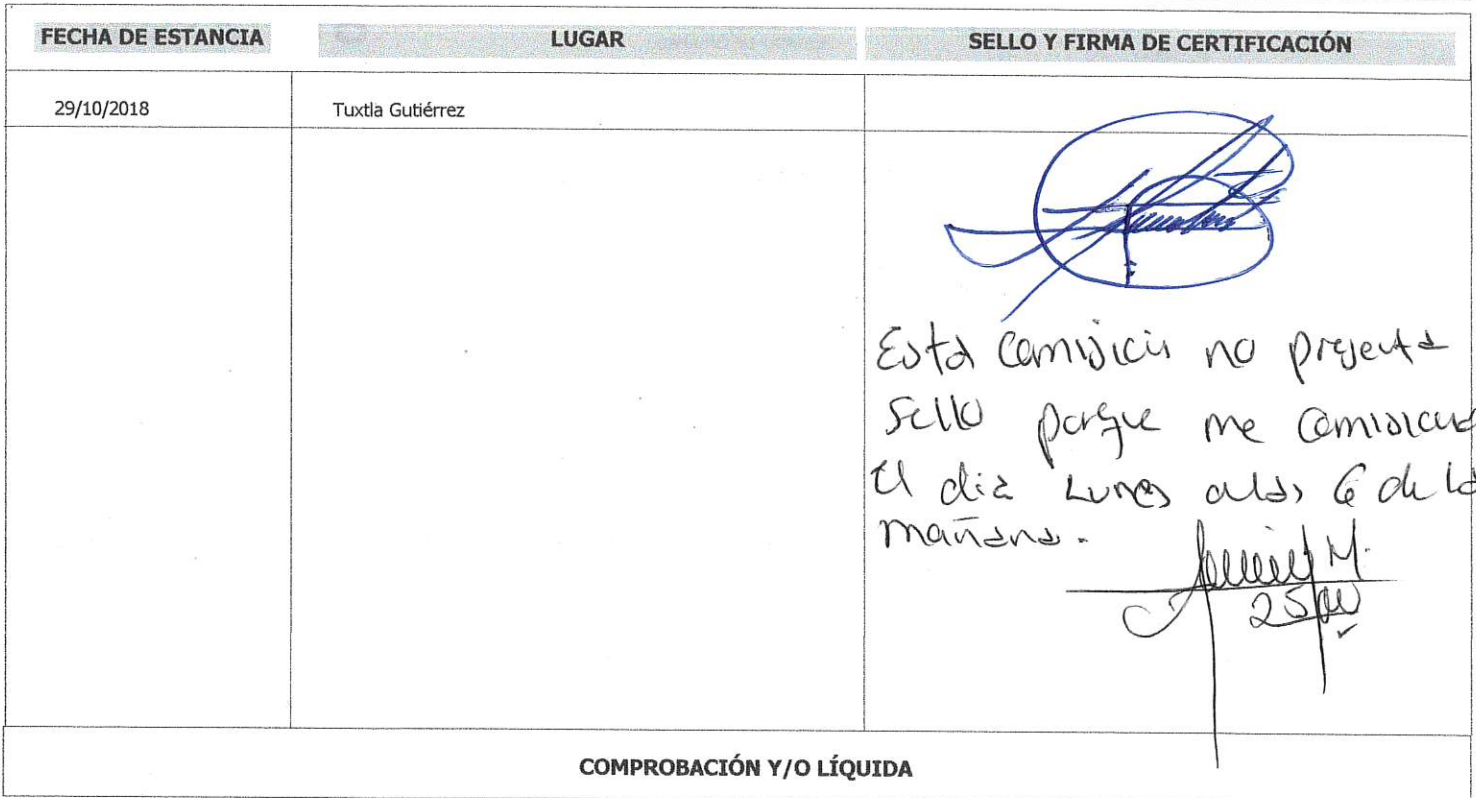 FECHA DE ESTANCIA LUGAR SELLO Y FIRMA DE CERTIFICACIÓN
29/10/2018 Tuxtla Gutiérrez
Esta Comisión no presenta
Sello porque me Comisiond
el dia Lunes a las 6 de la
mañana.
M.
COMPROBACIÓN Y/O LÍQUIDA